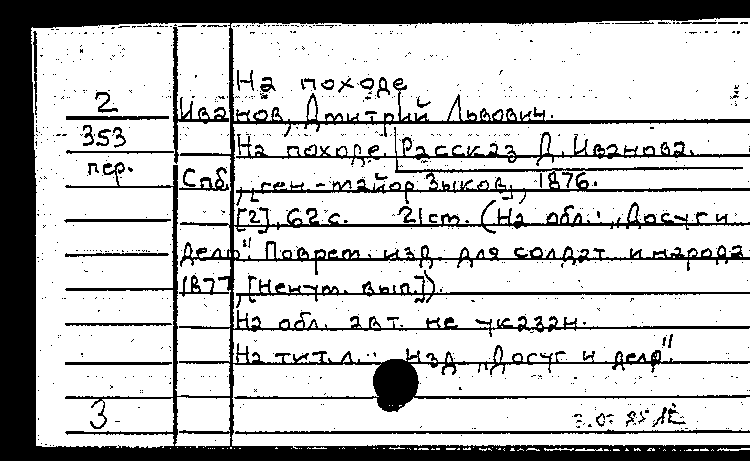 На походе
2 Иванов, Дмитрий Львович.
353 На походе. Рассказ Д. Иванова.
пер. Спб., [ген.-майор Зыков], 1876.
[2], 62 с. 21 см. (На обл.: „Досуг и
дело". Поврем. изд. для солдат и народа
1877, [Ненум. вып.]).
На обл. авт. не указан.
На тит. л.: Изд. „Досуг и дело"
3